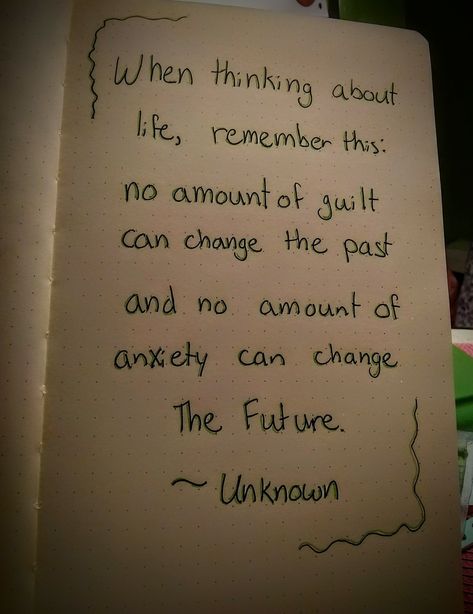 When thinking about
life, remember this:
no amount of guilt
can change the past
and no amount of
anxiety can change
The Future.
~ Unknown